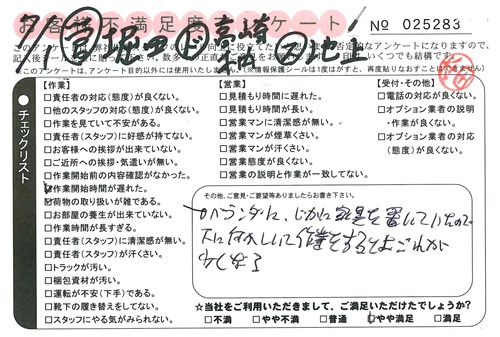 お客様不満足度アンケート
No 025283
チェックリスト
【作業】
□責任者の対応(態度)が良くない。
□他のスタッフの対応(態度)が良くない。
□作業を見ていて不安がある。
□責任者(スタッフ)に好感が持てない。
□お客様への挨拶が出来ていない。
□ご近所への挨拶・気遣いが無い。
□作業開始前の内容確認がなかった。
作業開始時間が遅れた。
荷物の取り扱いが雑である。
□お部屋の養生が出来ていない。
□作業時間が長すぎる。
□責任者(スタッフ)に清潔感が無い。
□責任者(スタッフ)が汗くさい。
□トラックが汚い。
□梱包資材が汚い。
□運転が不安(下手)である。
□靴下の履き替えをしてない。
□スタッフにやる気がみられない。
【営業】
□見積もり時間に遅れた。
□見積もり時間が長い。
□営業マンに清潔感が無い。
□営業マンが煙草くさい。
□営業マンが汗くさい。
□営業態度が良くない。
□営業の説明と作業が一致してない。
【受付・その他】
□電話の対応が良くない。
□オプション業者の説明・作業が良くない。
□オプション業者の対応(態度)が良くない。
その他、ご意見・ご要望等ありましたらお書き下さい。
ベランダに、じかに家具を置いていたので
下に何かしいて作業をするとよごれが
少くなる
☆当社をご利用いただきまして、ご満足いただけたでしょうか?
□不満 □やや不満 □普通 やや満足 □満足